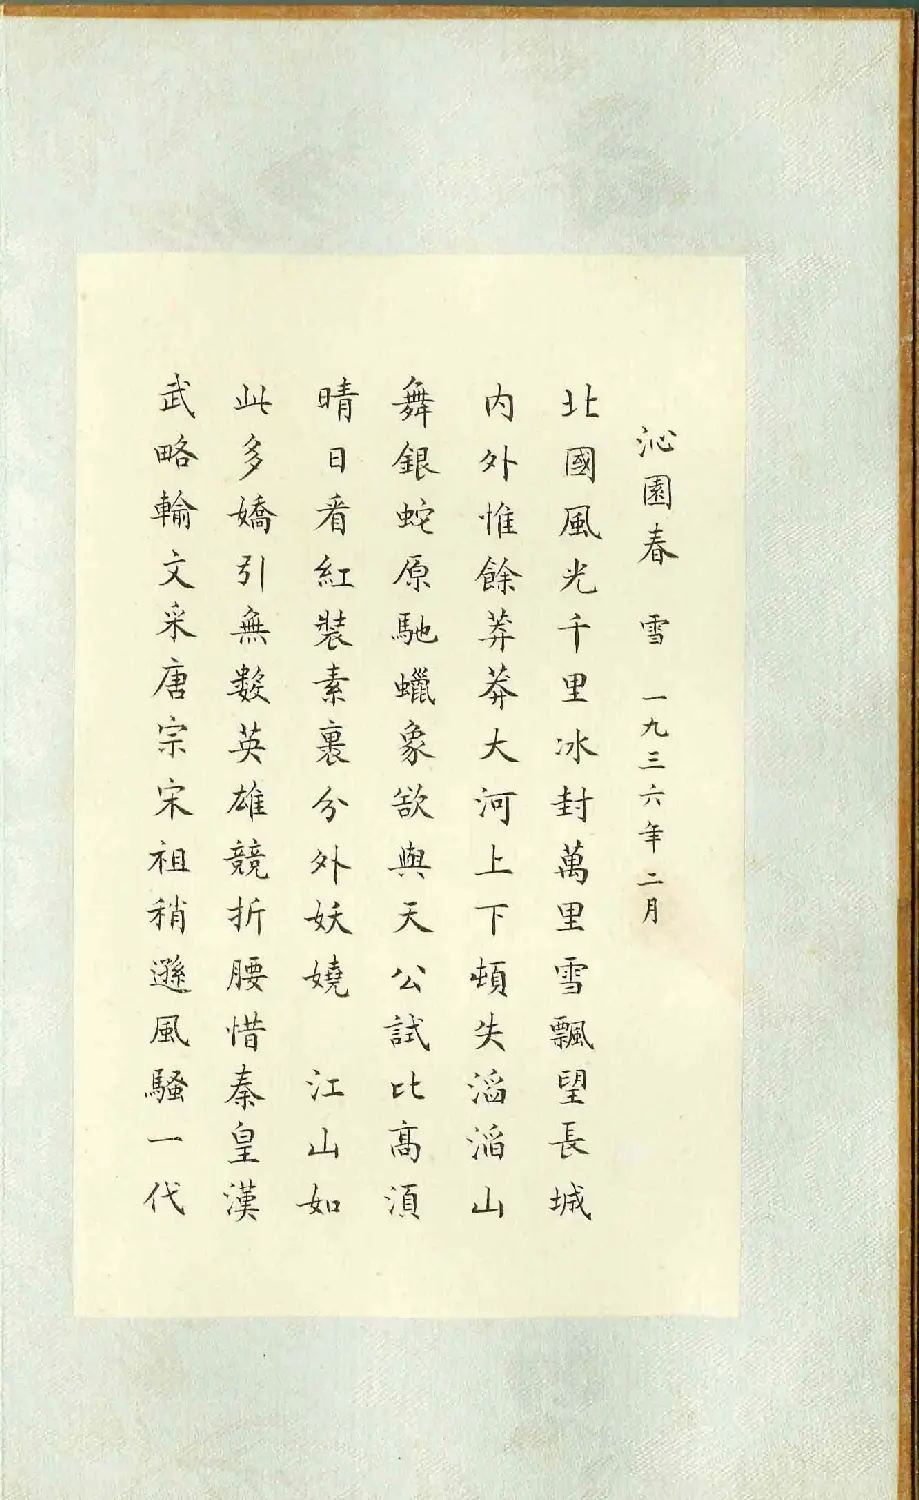 沁園春 雪 一九三六年二月
北國風光千里冰封萬里雪飄望長城
内外惟餘莽莽大河上下頓失滔滔山
舞銀蛇原馳蠟象欲與天公試比高須
晴日看紅裝素裹分外妖嬈 江山如
此多嬌引無數英雄競折腰惜秦皇漢
武略輸文采唐宗宋祖稍遜風騷一代